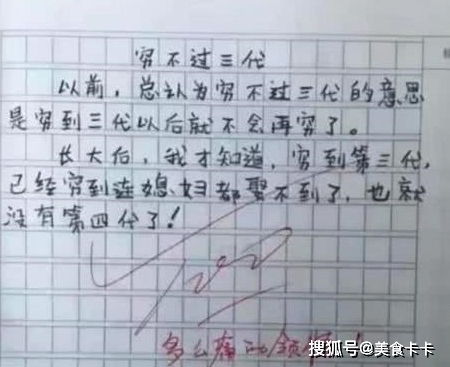 穷不过三代
以前，总认为穷不过三代的意思
是穷到三代以后就不会再穷了。
长大后，我才知道，穷到第三代，
已经穷到连媳妇都娶不到了，也就
没有第四代了！
100
多么痛的领悟
搜狐号@美食卡卡